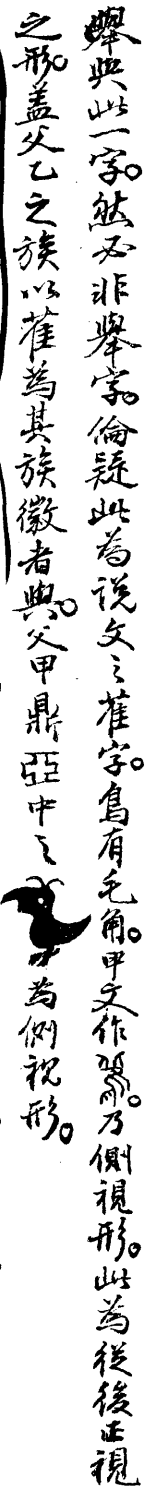 舉與此一字。然必非舉字。倫疑此為説文之雈字。鳥有毛角。甲文作。乃側視形。此為從後正視
之形。蓋父乙之族以雈為其族徽者與。父甲鼎亞中之為側視形。